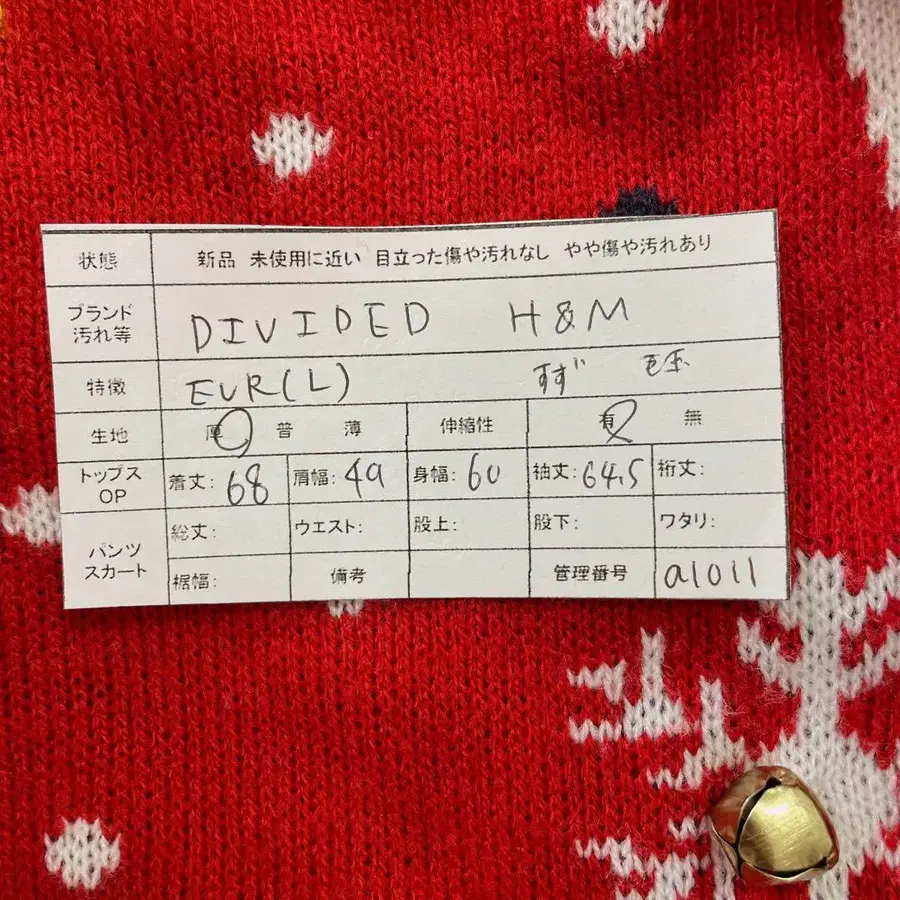 状態 新品 未使用に近い 目立った傷や汚れなし やや傷や汚れあり
ブランド 汚れ等 DIVIDED H&M
特徴 EUR(L) すず 毛玉
生地 厚 普 薄 伸縮性 有 無
トップス OP 着丈:68 肩幅:49 身幅:60 袖丈:64.5 裄丈:
パンツ スカート 総丈: ウエスト: 股上: 股下: ワタリ:
裾幅: 備考 管理番号 a1011